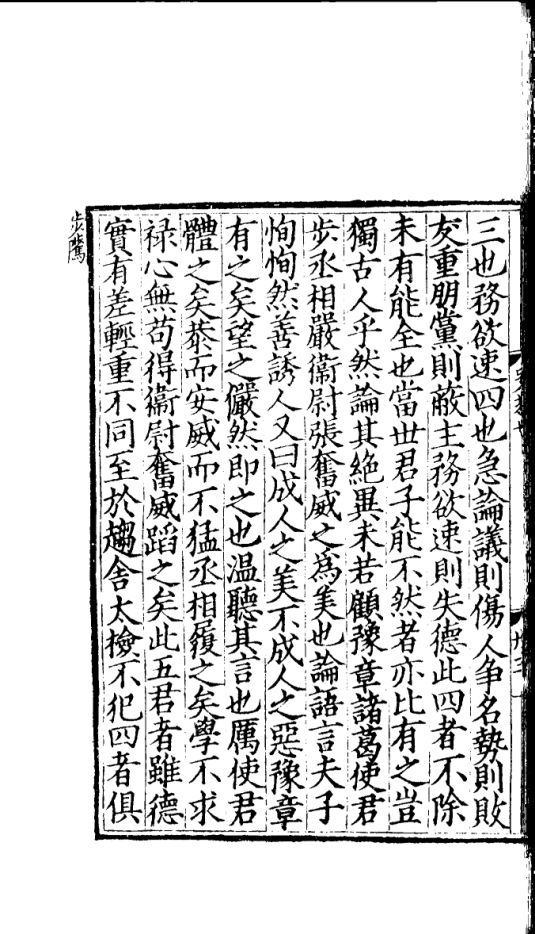 三也務欲速四也急論議則傷人争名勢則敗
友重朋黨則蔽主務欲速則失德此四者不除
未有能全也當世君子能不然者亦比有之豈
獨古人乎然論其絶異未若顧豫章諸葛使君
步丞相嚴衞尉張奮威之為美也論語言夫子
恂恂然善誘人又曰成人之美不成人之惡豫章
有之矣望之儼然即之也温聽其言也厲使君
體之矣恭而安威而不猛丞相履之矣學不求
禄心無苟得衞尉奮威蹈之矣此五君者雖德
實有差輕重不同至於趨舍大檢不犯四者俱
步騭